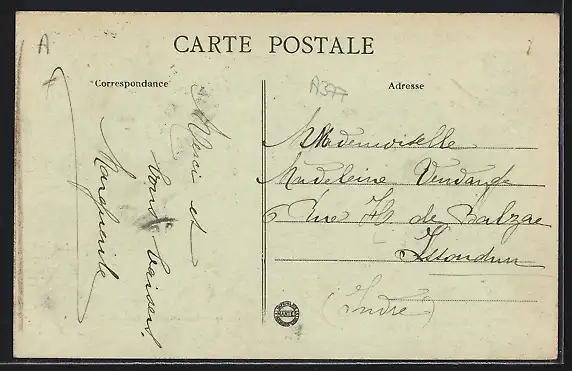 A
CARTE POSTALE
Correspondance
Adresse
A377
Merci et
bons baisers
Marguerite
Mademoiselle
Madeleine Vendange
6 Rue H. de Balzac
Issoudun
(Indre)